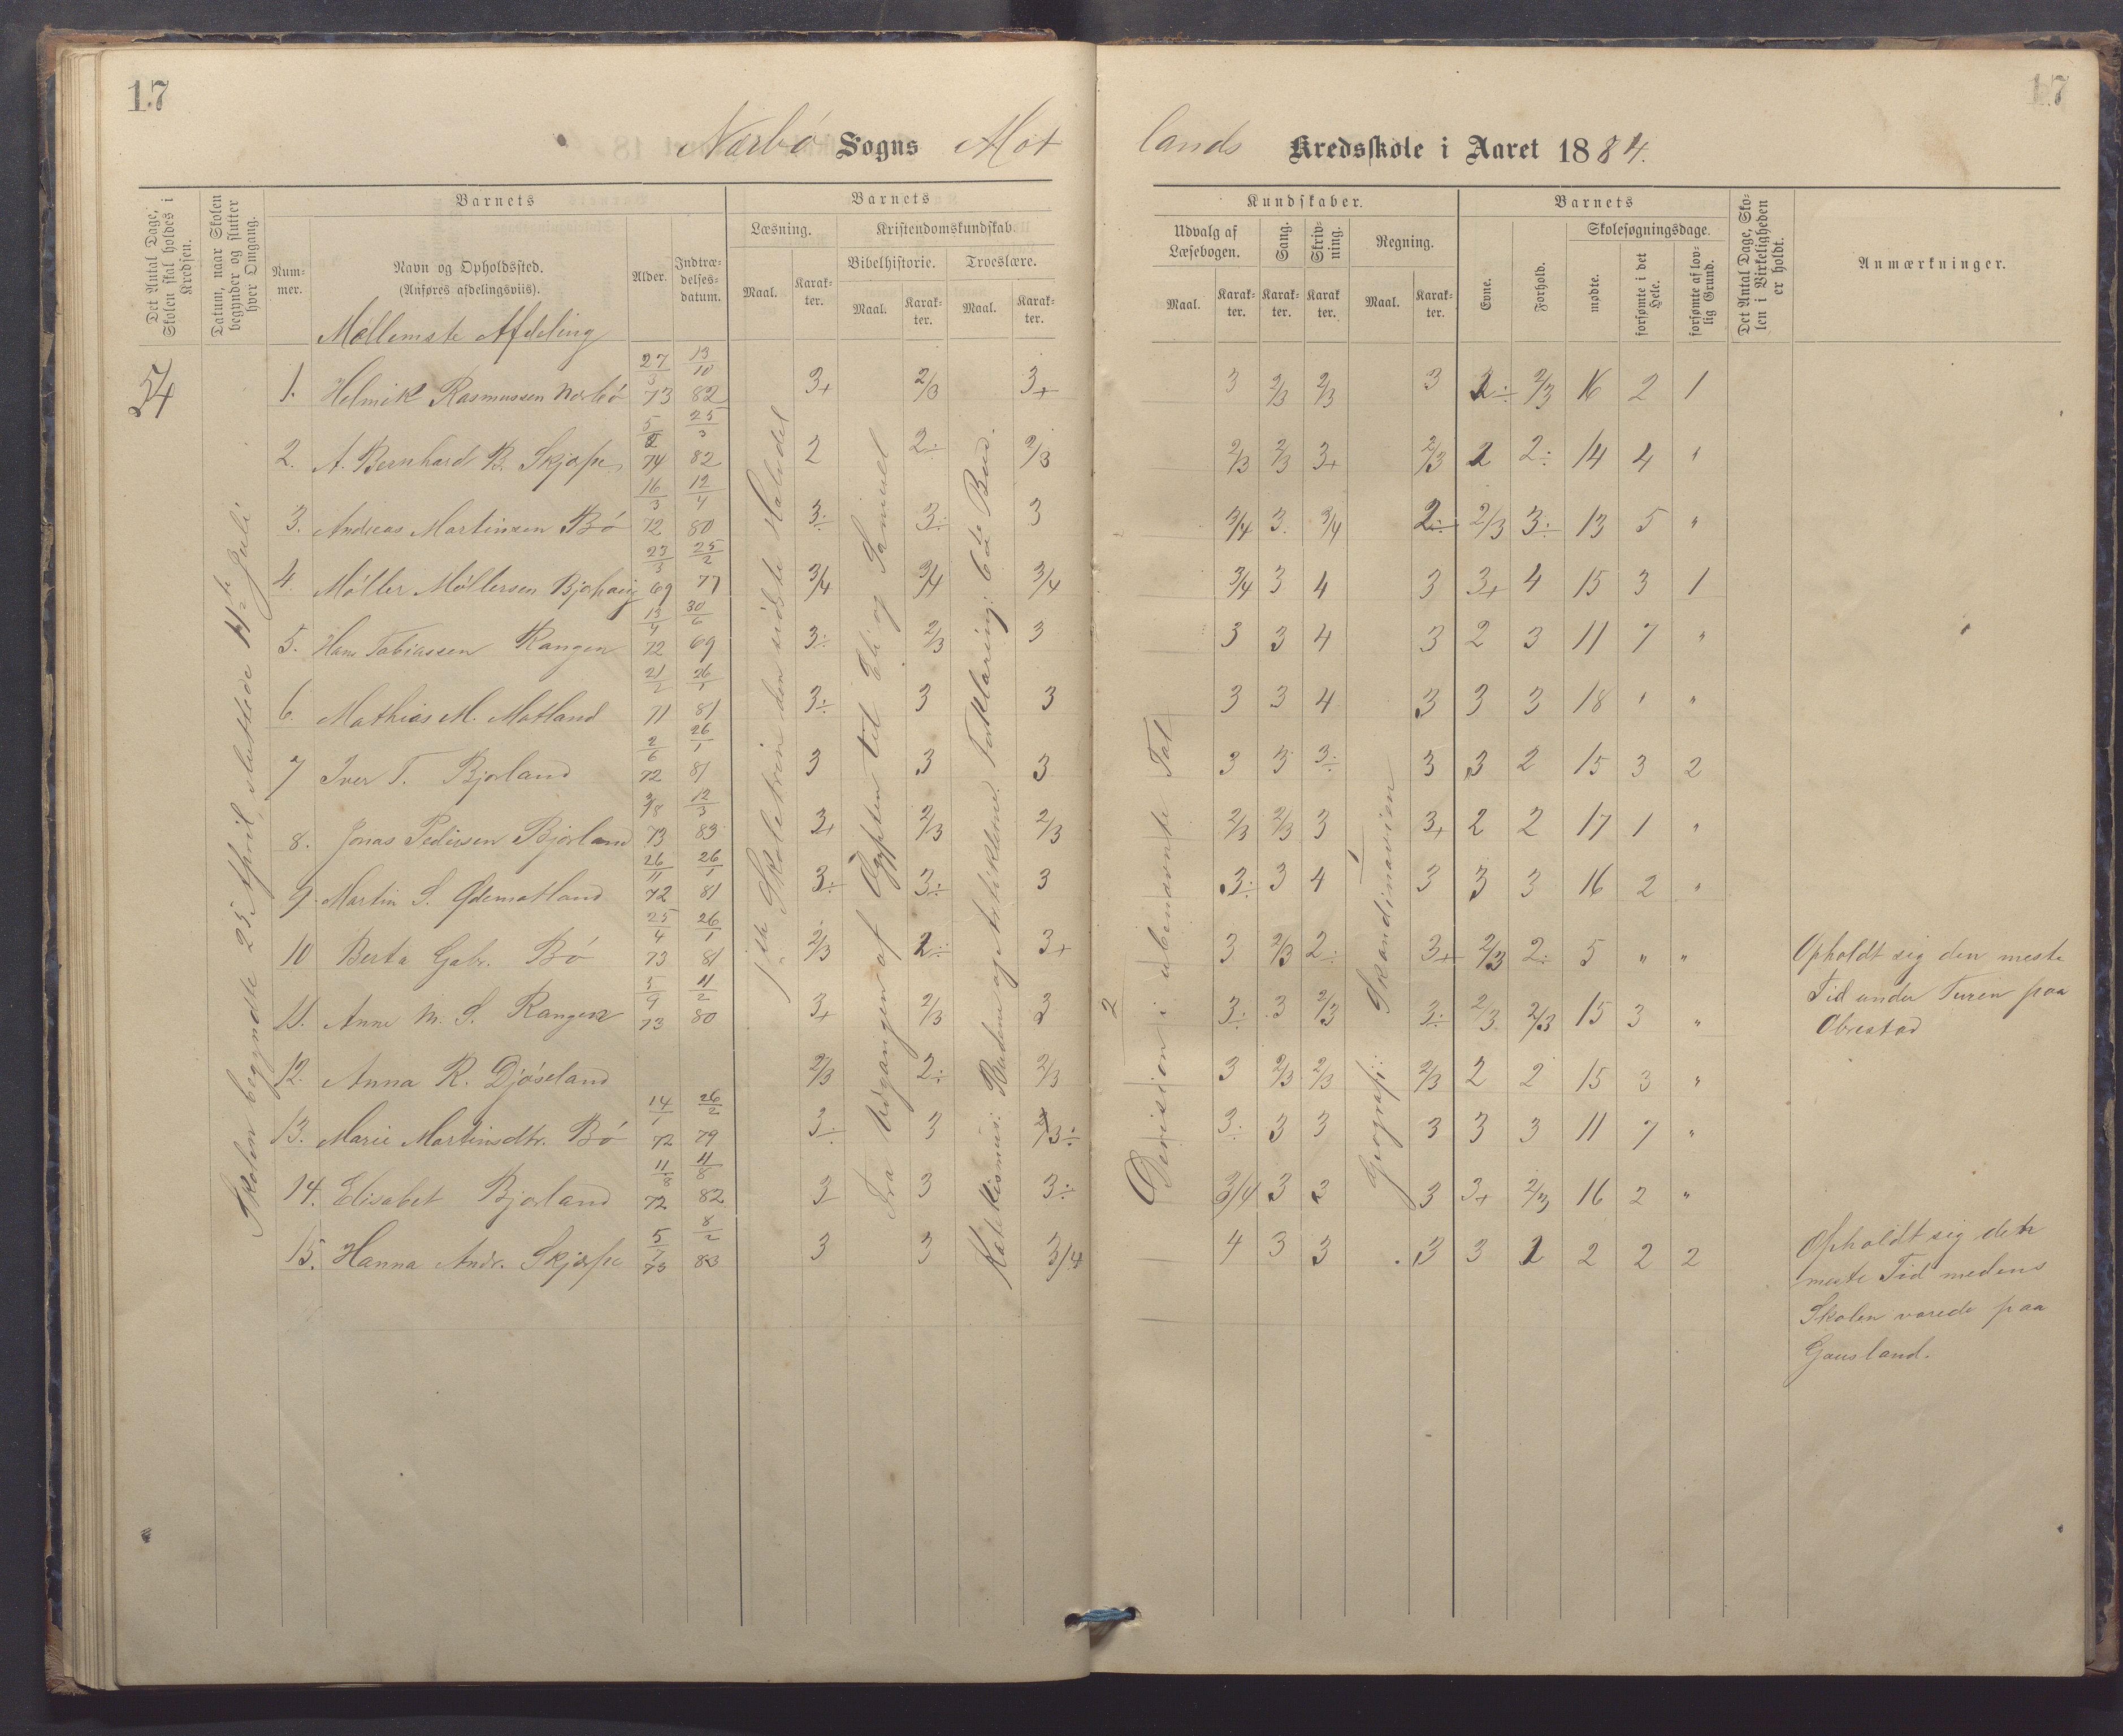 17
17
Nærbø Sogns Mot
lands Kredsskole i Aaret 1884.
Det Antal Dage, Skolen skal holdes i Kredsen.
Datum, naar Skolen begynder og slutter hver Omgang.
Barnets
Nummer.
Navn og Opholdssted.
(Anføres afdelingsviis).
Alder.
Indtrædelsesdatum.
Barnets
Læsning.
Maal.
Karakter.
Kristendomskundskab.
Bibelhistorie.
Maal.
Karakter.
Troeslære.
Maal.
Karakter.
Kundskaber.
Udvalg af Læsebogen.
Maal.
Karakter.
Sang.
Karakter.
Skrivning.
Karakter.
Regning.
Maal.
Karakter.
Barnets
Evne.
Forhold.
Skolesøgningsdage.
mødte.
forsømte i det Hele.
forsømte af lovlig Grund.
Det Antal Dage, Skolen i Virkeligheden er holdt.
Anmærkninger.
Mellemste Afdeling
54
Skolen begyndte 25 April, sluttede Juli
1ste Skoletrin den sidste Halvdel
Fra Udgangen af Ægypten til Eli og Samuel
Katekismus: Buden og Artiklerne. Forklaring: 6te Bud.
2
Division i ubenævnte Tal
Geografi: Skandinavien
1. Helmik Rasmussen Nærbø 27/3 73 13/10 82 3+ 2/3 3+ 3 2/3 2/3 3 2÷ 2/3 16 2 1
2. A. Bernhard B. Skjæpe 5/2 74 25/3 82 2 2÷ 2/3 2/3 2/3 3+ 2/3 2 2÷ 14 4 "
3. Andreas Martinsen Bø 16/3 72 12/4 80 3÷ 3÷ 3 3/4 3 3/4 2÷ 2/3 3÷ 13 5 "
4. Møller Møllersen Bjorhaug 23/3 69 25/2 77 3/4 3/4 3/4 3/4 3 4 3 3+ 4 15 3 1
5. Hans Tobiassen Rangen 13/4 72 30/6 69 3÷ 2/3 3 3 3 4 3 2 3 11 7 "
6. Mathias M. Motland 21/2 71 26/1 81 3÷ 3 3 3 3 4 3 3 3 18 " "
7 Iver T. Bjorland 2/6 72 26/1 81 3 3 3 3 3 3÷ 3 3 2 15 3 2
8. Jonas Pedersen Bjorland 3/8 73 12/3 83 3+ 2/3 2/3 2/3 2/3 3 3+ 2 2 17 1 "
9. Martin S. Ødemotland 26/11 72 26/1 81 3÷ 3÷ 3 3÷ 3 4 3 3 3 16 2 "
10 Berta Gabr. Bø 25/4 73 26/1 81 2/3 2÷ 3+ 3 2/3 2÷ 3+ 2/3 2÷ 5 " " Opholdt sig den meste
Tid under Turen paa
Obrestad
11. Anne M. S. Rangen 5/9 73 11/2 80 3+ 2/3 3 3÷ 3 2/3 3÷ 2/3 2/3 15 3 "
12. Anna R. Djøseland 2/3 2÷ 2/3 3 2/3 2/3 2/3 2 2 15 3 "
13. Marie Martinsdtr. Bø 14/1 72 26/2 79 3÷ 3 3÷ 3÷ 3 3 3 3 3 11 7 "
14. Elisabet Bjorland 11/8 72 11/8 82 3 3 3÷ 3/4 3 3 3 3+ 2/3 16 2 "
15. Hanna Andr. Skjæpe 5/7 73 8/2 83 3 3 3/4 4 3 3 3 3 2 2 2 2 Opholdt sig den
meste Tid medens
Skolen varede paa
Gausland.